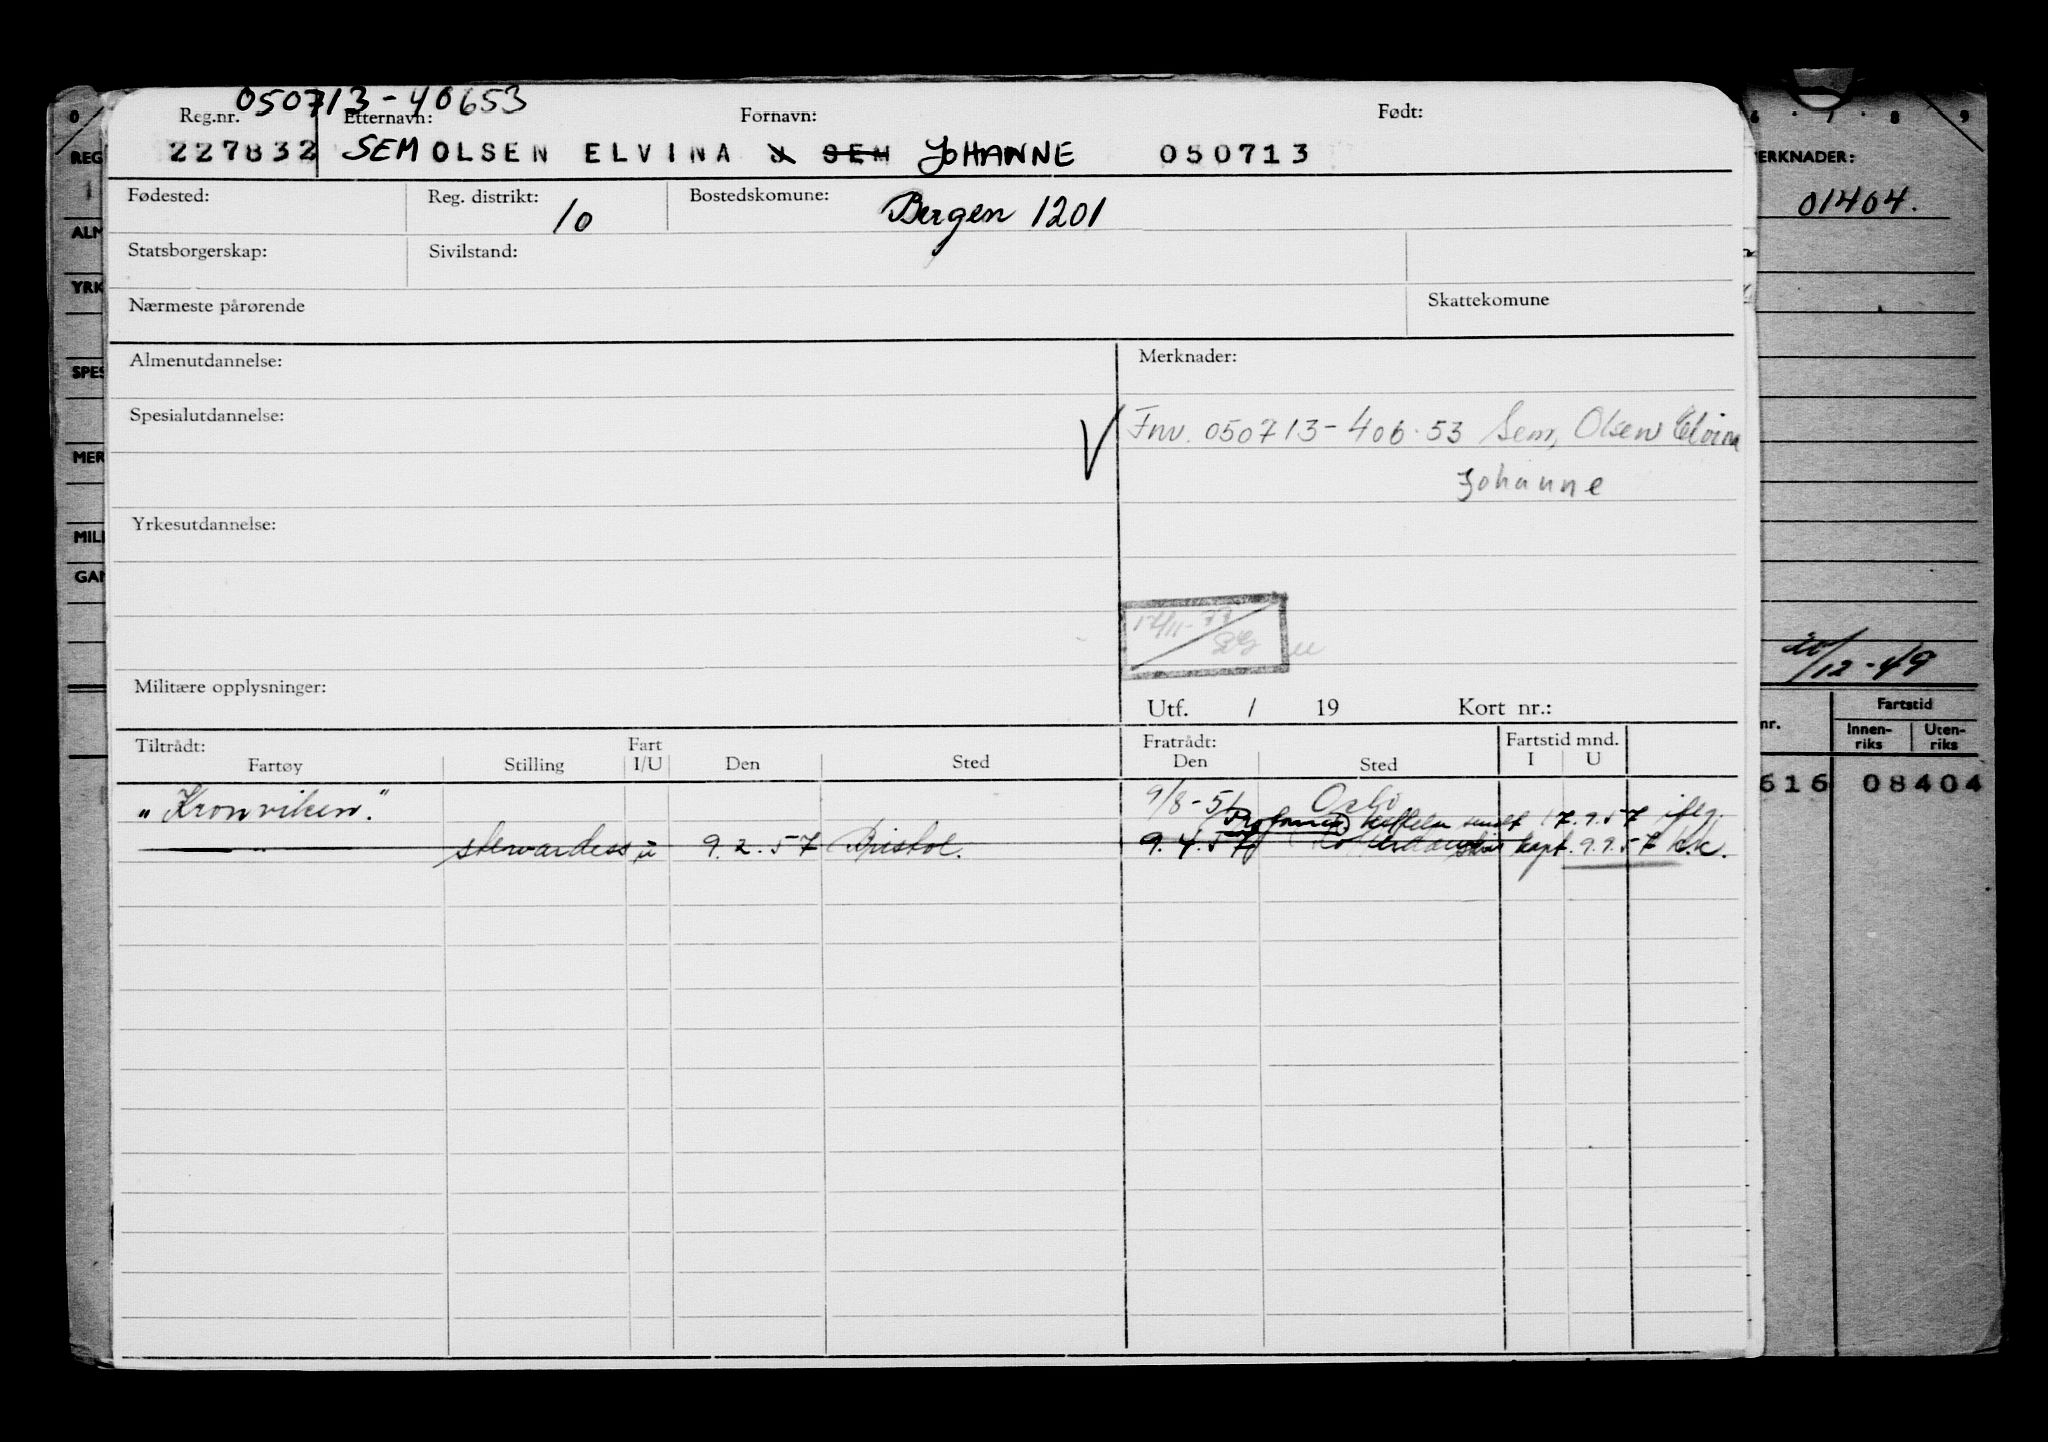 050713-40653
Reg.nr. Etternavn: Fornavn: Født:
227832 SEM OLSEN ELVINA J SEM JOHANNE 050713
Fødested: Reg. distrikt: 10 Bostedskomune: Bergen 1201
Statsborgerskap: Sivilstand:
Nærmeste pårørende Skattekomune
Almenutdannelse: Merknader:
Spesialutdannelse: Fnv. 050713-406.53 Sem, Olsen Elvina
Johanne
Yrkesutdannelse:
Militære opplysninger:
Utf. / 19 Kort nr.:
Tiltrådt: Fart Fratrådt: Fartstid mnd.
Fartøy Stilling I/U Den Sted Den Sted I U
"Kronviken". 9/8-51 Oslo
17.9.57 iflg.
— " — stewardess u 9.2.57 Bristol. 9.4.57 Rotterdam kapt. 9.9.57 k.k.
0
REG
ALM
YRK
SPES
MER
MILI
GAN
6 7 8 9
ERKNADER:
01404.
/12-49
nr. Fartstid
Innen-riks Uten-riks
616 08404